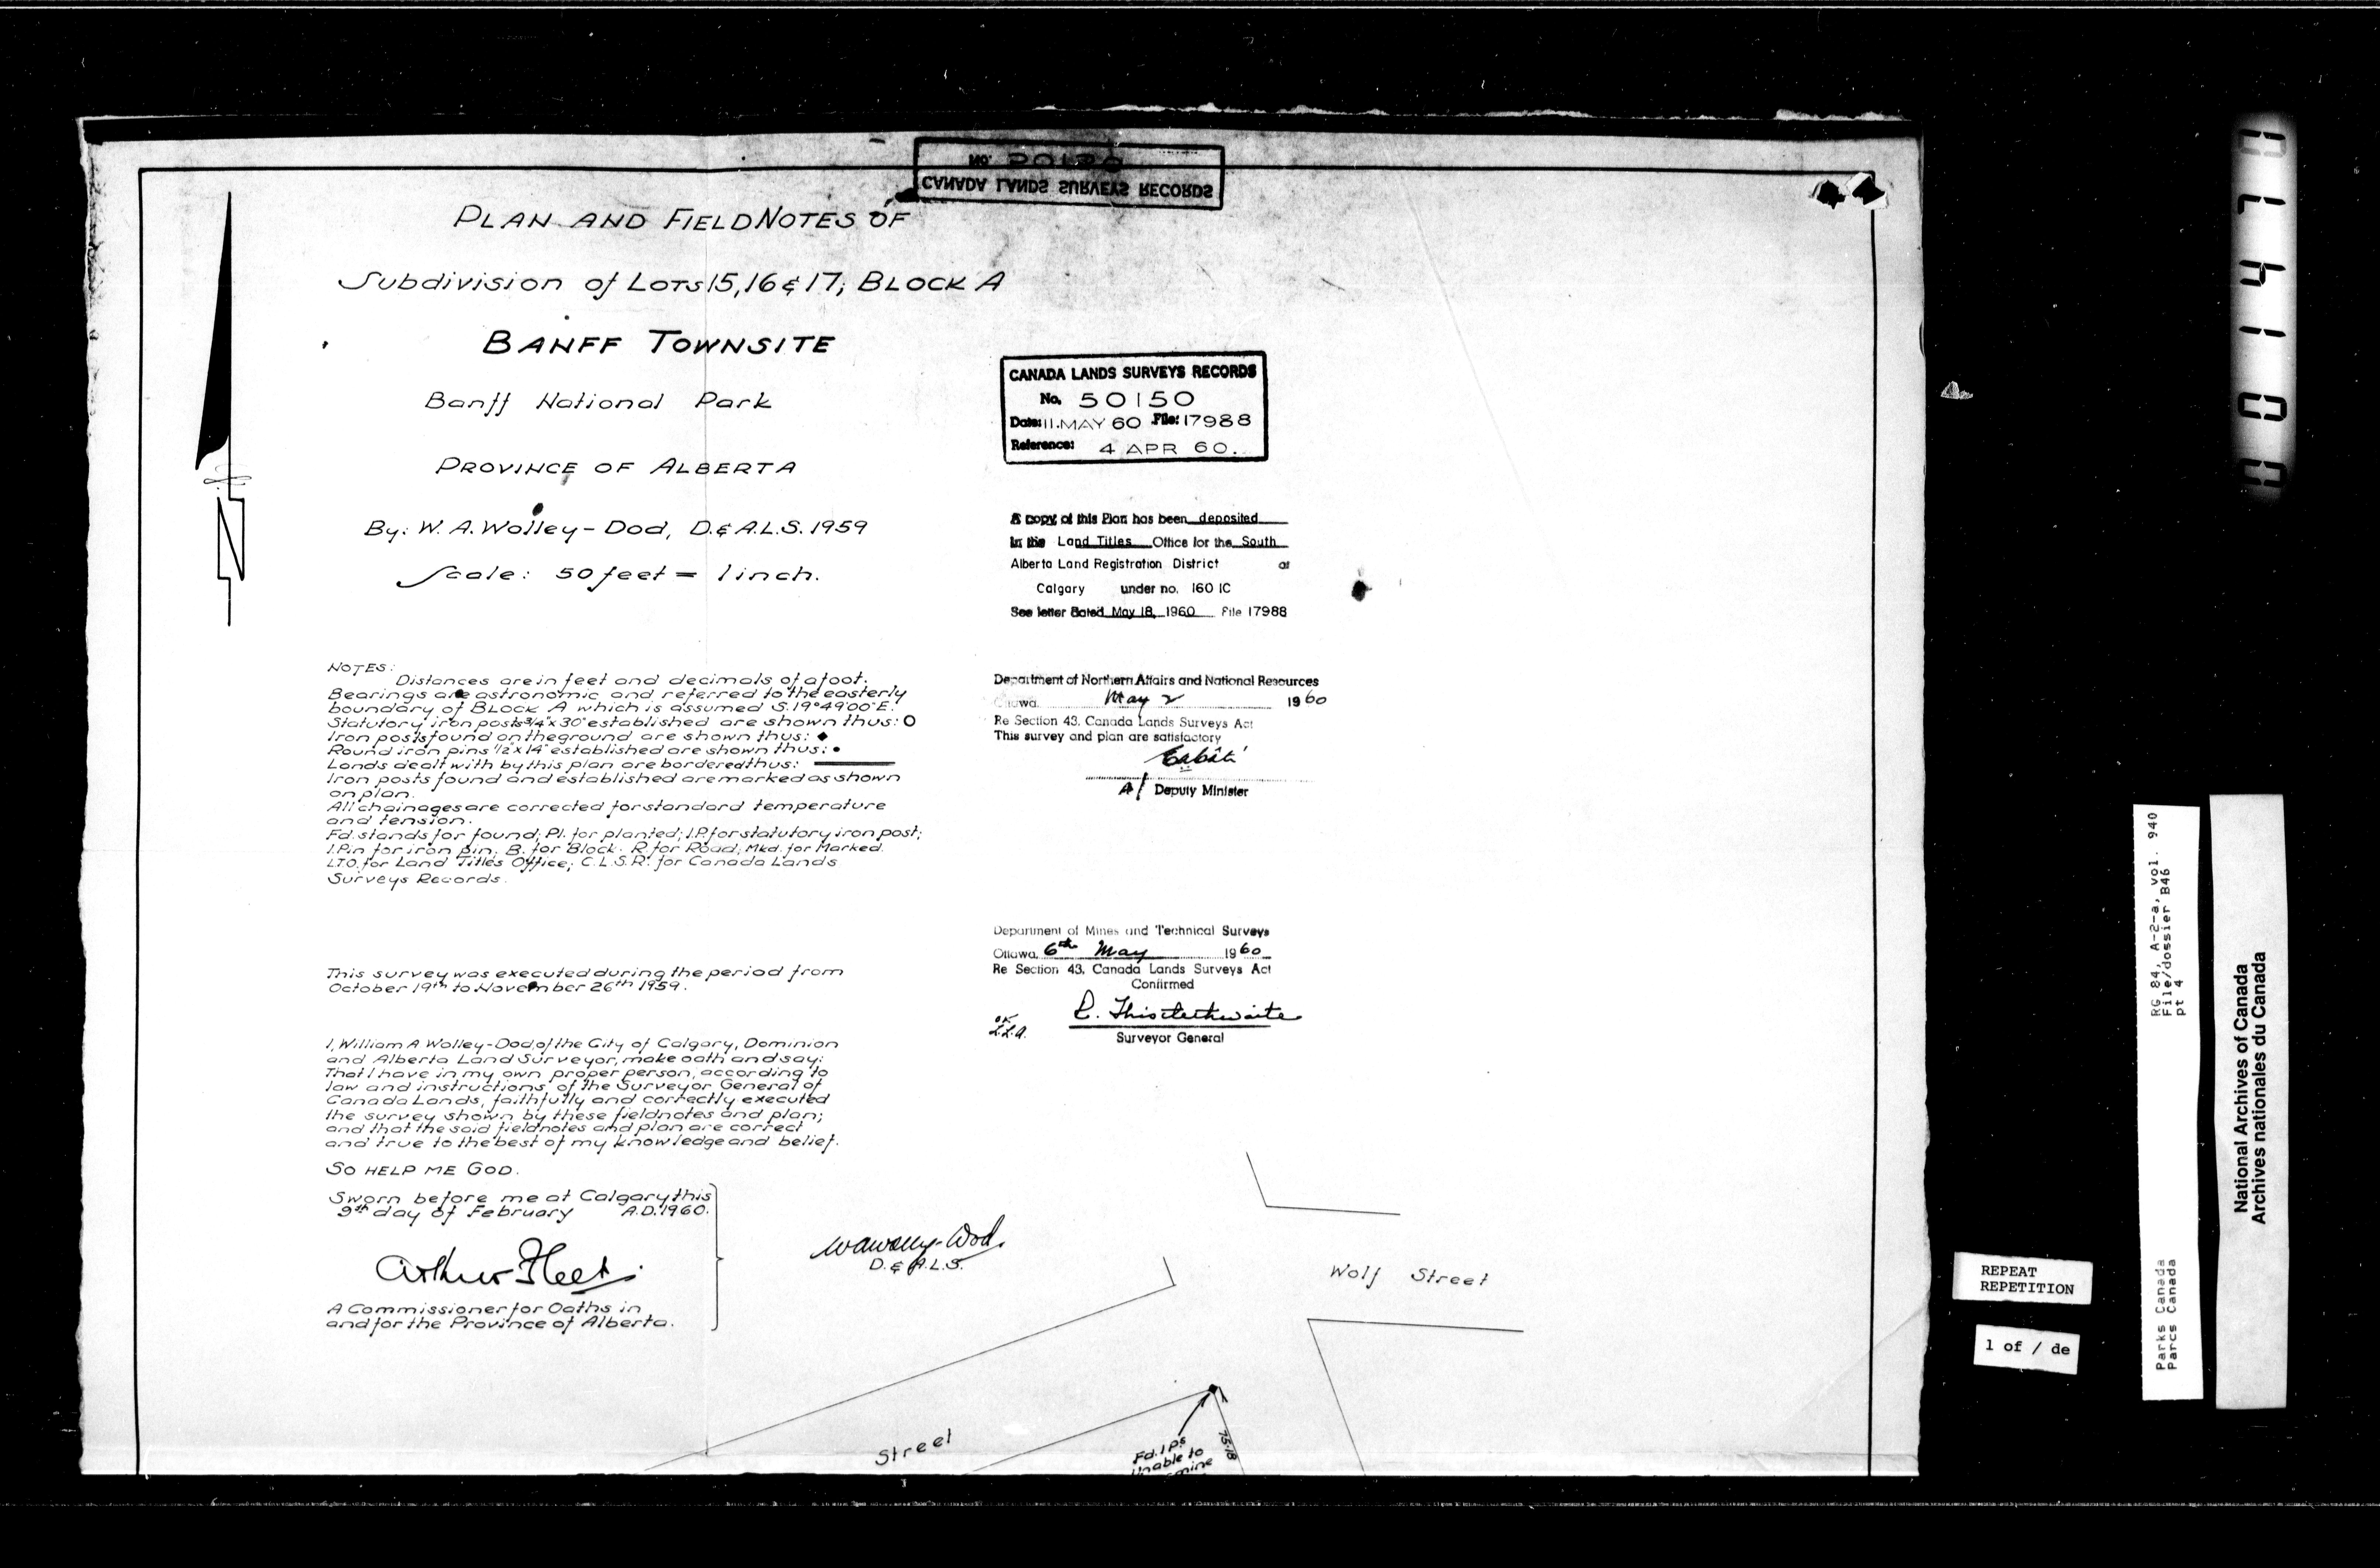 CANADA LANDS SURVEYS RECORDS
PLAN AND FIELDNOTES OF
Subdivision of LOTS 15, 16 & 17, BLOCK A
BANFF TOWNSITE
Banff National Park
PROVINCE OF ALBERTA
By: W. A. Wolley-Dod, D. & A.L.S. 1959
Scale: 50 feet = 1 inch.
N
CANADA LANDS SURVEYS RECORDS
No. 50150
Date: 11 MAY 60 File: 17988
Reference: 4 APR 60.
A copy of this Plan has been deposited
in the Land Titles Office for the South
Alberta Land Registration District at
Calgary under no. 160 IC
See letter dated May 18, 1960 File 17988
NOTES:
Distances are in feet and decimals of a foot.
Bearings are astronomic and referred to the easterly
boundary of BLOCK A which is assumed S.19°49'00"E.
Statutory iron posts 3/4"x 30" established are shown thus: O
Iron posts found on the ground are shown thus: ◆
Round iron pins 1/2"x 14" established are shown thus: •
Lands dealt with by this plan are bordered thus:
Iron posts found and established are marked as shown
on plan.
All chainages are corrected for standard temperature
and tension.
Fd. stands for found; Pl. for planted; I.P. for statutory iron post;
I.Pin for iron pin; B. for Block; R. for Road; Mkd. for Marked.
L.T.O. for Land Titles Office; C.L.S.R. for Canada Lands
Surveys Records.
Department of Northern Affairs and National Resources
Ottawa, May 2 1960
Re Section 43, Canada Lands Surveys Act
This survey and plan are satisfactory
A/ Deputy Minister
Department of Mines and Technical Surveys
Ottawa, 6th May 1960
Re Section 43, Canada Lands Surveys Act
Confirmed
R. Thistlethwaite
Surveyor General
This survey was executed during the period from
October 19th to November 26th 1959.
I, William A Wolley-Dod, of the City of Calgary, Dominion
and Alberta Land Surveyor, make oath and say:
That I have in my own proper person, according to
law and instructions, of the Surveyor General of
Canada Lands, faithfully and correctly executed
the survey shown by these fieldnotes and plan;
and that the said fieldnotes and plan are correct
and true to the best of my knowledge and belief.
SO HELP ME GOD.
Sworn before me at Calgary this
9th day of February A.D. 1960.
Arthur Fleet
A Commissioner for Oaths in
and for the Province of Alberta.
WAWolley-Dod.
D. & A.L.S.
Wolf Street
Street
Fd. I.P.s
Unable to
75.18
014100
RG 84, A-2-a, vol. 940
File/dossier B46
pt 4
Parks Canada
Parcs Canada
National Archives of Canada
Archives nationales du Canada
REPEAT
REPETITION
1 of / de